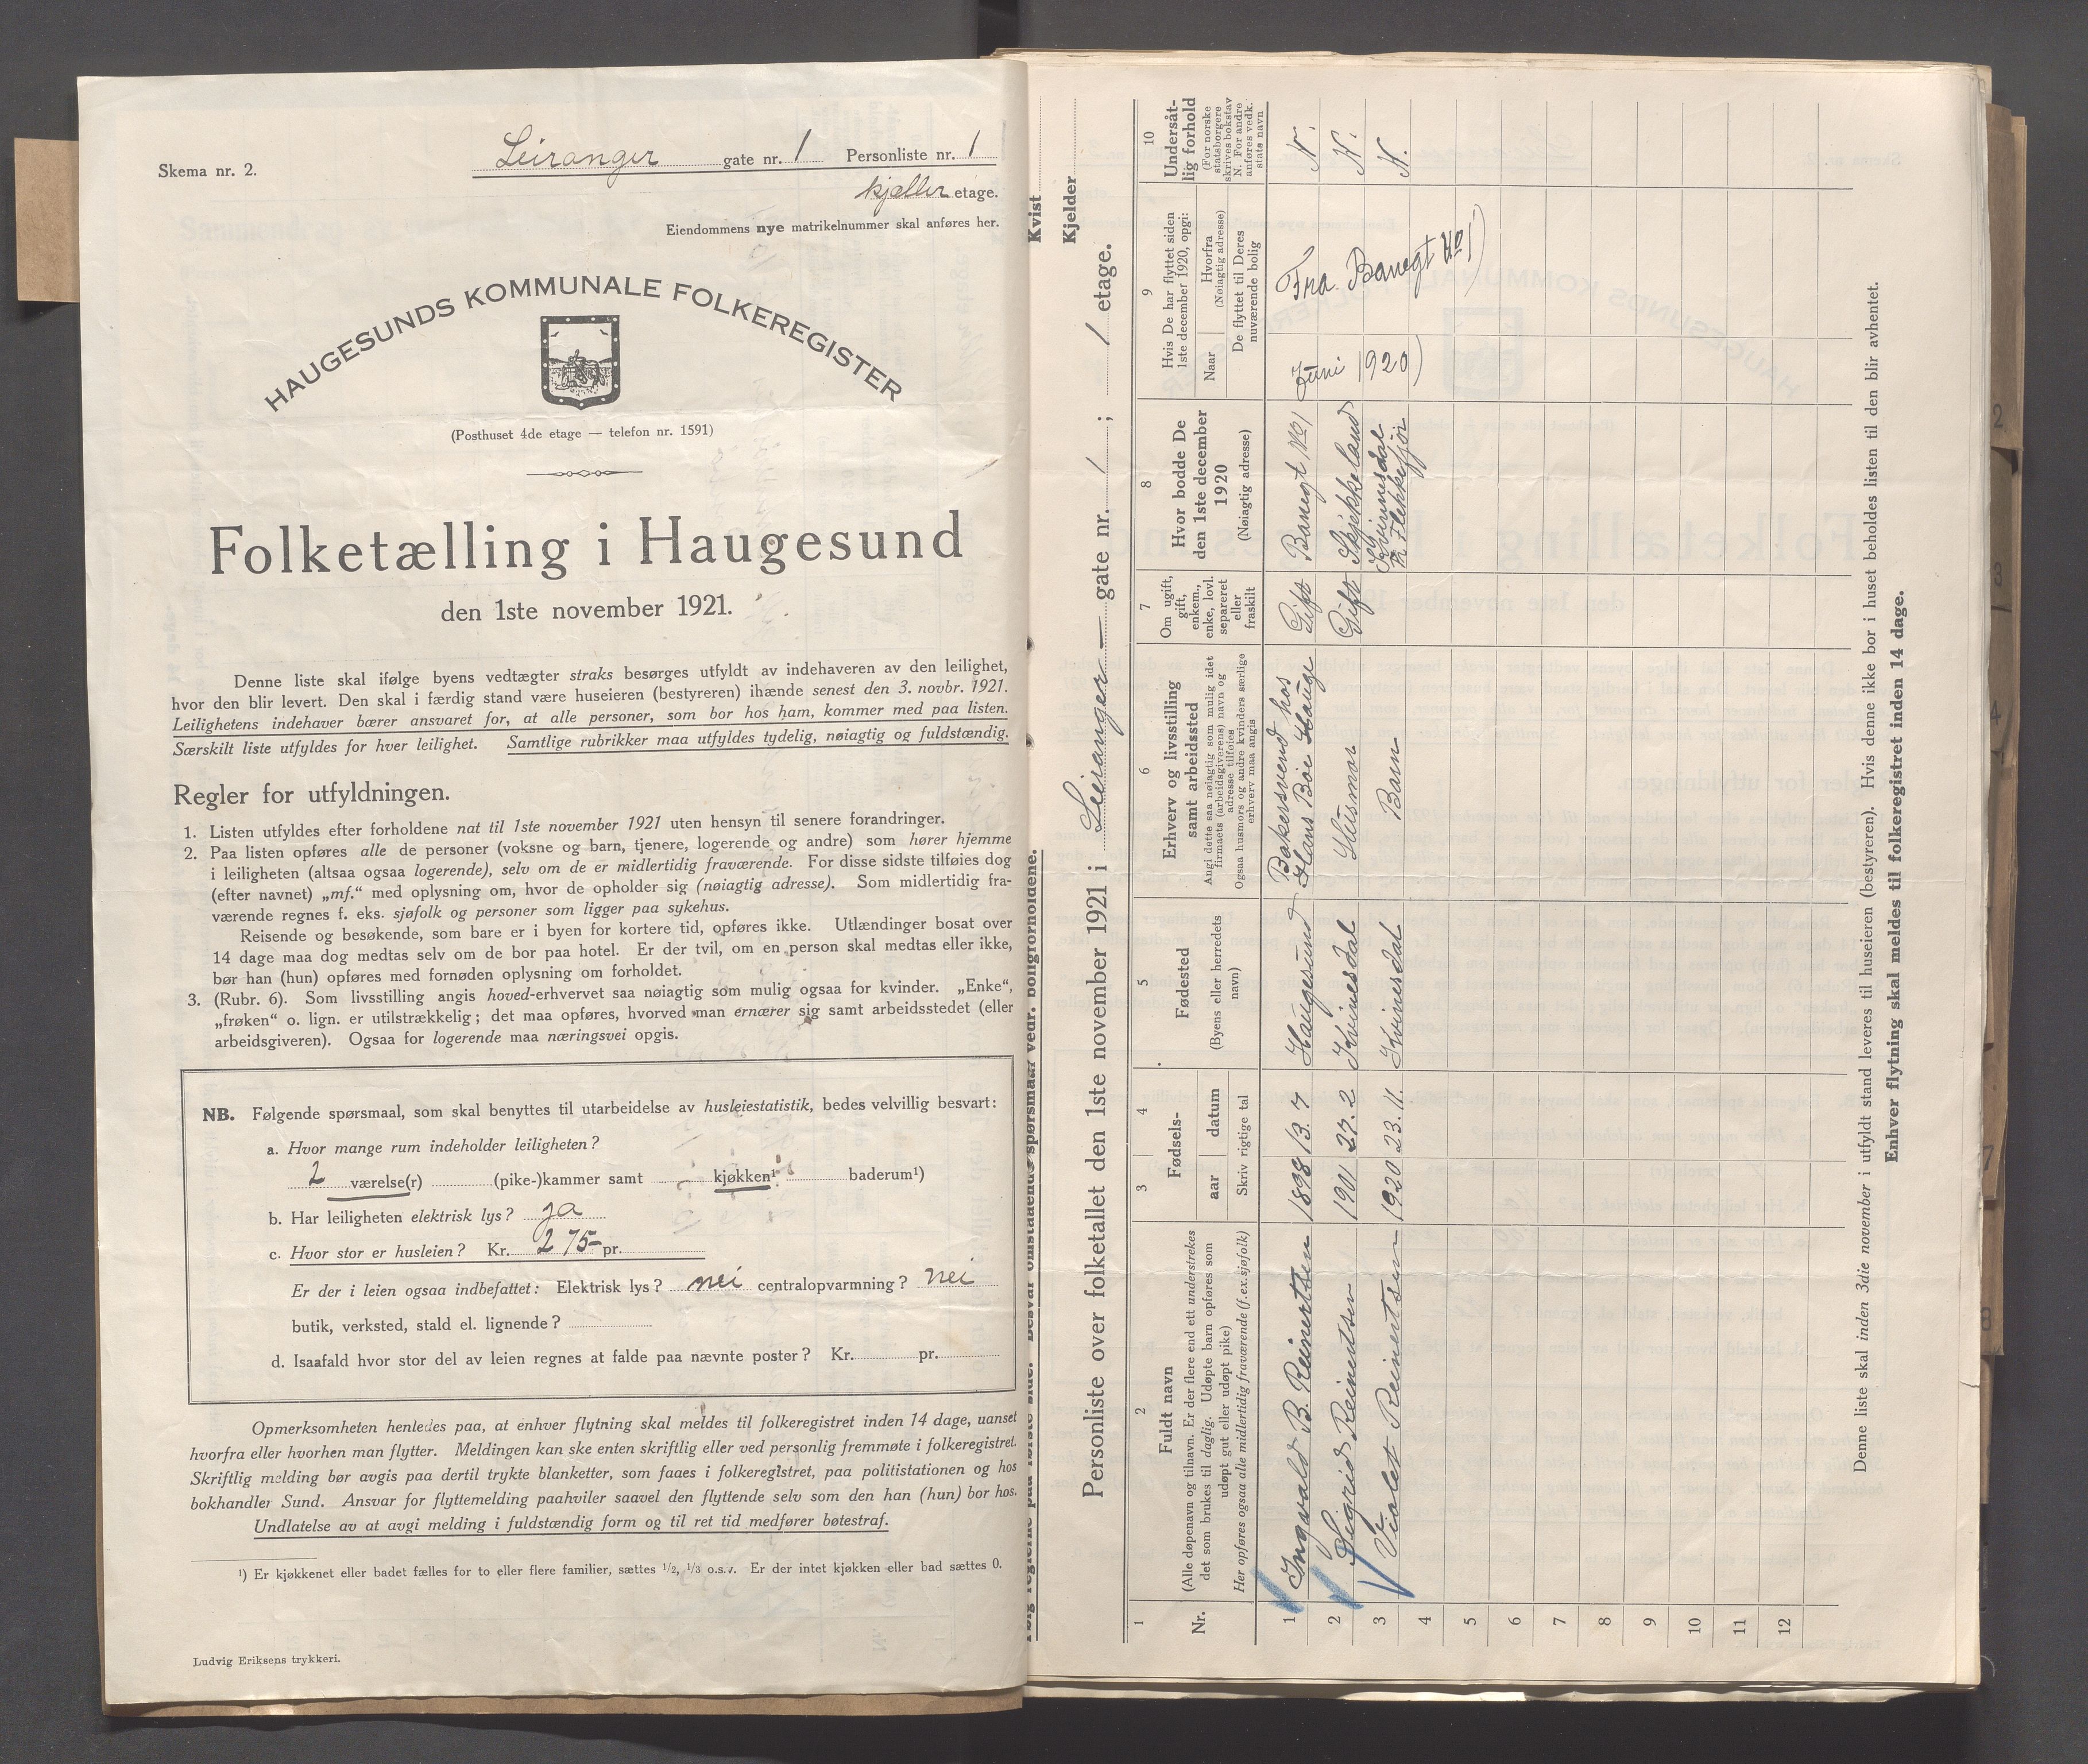 Skema nr. 2.
Leiranger gate nr. 1 Personliste nr. 1
kjæller etage.
Eiendommens nye matrikelnummer skal anføres her.
HAUGESUNDS KOMMUNALE FOLKEREGISTER
(Posthuset 4de etage — telefon nr. 1591)
Folketælling i Haugesund
den 1ste november 1921.
Denne liste skal ifølge byens vedtægter straks besørges utfyldt av indehaveren av den leilighet,
hvor den blir levert. Den skal i færdig stand være huseieren (bestyreren) ihænde senest den 3. novbr. 1921.
Leilighetens indehaver bærer ansvaret for, at alle personer, som bor hos ham, kommer med paa listen.
Særskilt liste utfyldes for hver leilighet. Samtlige rubrikker maa utfyldes tydelig, nøiagtig og fuldstændig.
Regler for utfyldningen.
1. Listen utfyldes efter forholdene nat til 1ste november 1921 uten hensyn til senere forandringer.
2. Paa listen opføres alle de personer (voksne og barn, tjenere, logerende og andre) som hører hjemme
i leiligheten (altsaa ogsaa logerende), selv om de er midlertidig fraværende. For disse sidste tilføies dog
(efter navnet) „mf.“ med oplysning om, hvor de opholder sig (nøiagtig adresse). Som midlertidig fra-
værende regnes f. eks. sjøfolk og personer som ligger paa sykehus.
Reisende og besøkende, som bare er i byen for kortere tid, opføres ikke. Utlændinger bosat over
14 dage maa dog medtas selv om de bor paa hotel. Er der tvil, om en person skal medtas eller ikke,
bør han (hun) opføres med fornøden oplysning om forholdet.
3. (Rubr. 6). Som livsstilling angis hoved-erhvervet saa nøiagtig som mulig ogsaa for kvinder. „Enke“,
„frøken“ o. lign. er utilstrækkelig; det maa opføres, hvorved man ernærer sig samt arbeidsstedet (eller
arbeidsgiveren). Ogsaa for logerende maa næringsvei opgis.
NB. Følgende spørsmaal, som skal benyttes til utarbeidelse av husleiestatistik, bedes velvillig besvart:
a. Hvor mange rum indeholder leiligheten?
2 værelse(r) (pike-)kammer samt kjøkken¹ baderum¹)
b. Har leiligheten elektrisk lys? ja
c. Hvor stor er husleien? Kr. 275- pr.
Er der i leien ogsaa indbefattet: Elektrisk lys? nei centralopvarmning? nei
butik, verksted, stald el. lignende?
d. Isaafald hvor stor del av leien regnes at falde paa nævnte poster? Kr. pr.
Opmerksomheten henledes paa, at enhver flytning skal meldes til folkeregistret inden 14 dage, uanset
hvorfra eller hvorhen man flytter. Meldingen kan ske enten skriftlig eller ved personlig fremmøte i folkeregistret.
Skriftlig melding bør avgis paa dertil trykte blanketter, som faaes i folkeregistret, paa politistationen og hos
bokhandler Sund. Ansvar for flyttemelding paahviler saavel den flyttende selv som den han (hun) bor hos.
Undlatelse av at avgi melding i fuldstændig form og til ret tid medfører bøtestraf.
¹) Er kjøkkenet eller badet fælles for to eller flere familier, sættes 1/2, 1/3 o.s.v. Er der intet kjøkken eller bad sættes 0.
Ludvig Eriksens trykkeri.
Besvar omstaaende spørsmaal vedr. boligforholdene.
Kvist
Kjelder
Personliste over folketallet den 1ste november 1921 i Leiranger gate nr. 1; 1 etage.
1 2 3 4 5 6 7 8 9 10
Nr.
Fuldt navn
(Alle døpenavn og tilnavn. Er der flere end ett understrekes
det som brukes til daglig. Udøpte barn opføres som
udøpt gut eller udøpt pike)
Her opføres ogsaa alle midlertidig fraværende (f.ex.sjøfolk)
Fødsels-
aar datum
Skriv rigtige tal
Fødested
(Byens eller herredets
navn)
Erhverv og livsstilling
samt arbeidssted
Angi dette saa nøiagtig som mulig idet
firmaets (arbeidsgiverens) navn og
adresse tilføies
Ogsaa husmors og andre kvinders særlige
erhverv maa angis
Om ugift,
gift,
enkem.,
enke, lovl.
separeret
eller
fraskilt
Hvor bodde De
den 1ste december
1920
(Nøiagtig adresse)
Hvis De har flyttet siden
1ste december 1920, opgi:
Naar
Hvorfra
(Nøiagtig adresse)
De flyttet til Deres
nuværende bolig
Undersåt-
lig forhold
(For norske
statsborgere
skrives bokstav
N. For andre
anføres vedk.
stats navn
1 Ingvald B. Reinertsen 1898 13. 7 Haugesund Bakersvend hos Hans Böe Hauge Gift Banegt No 1 Juni 1920) Fra Banegt No 1) N.
2 Sigrid Reinertsen 1901 27. 2 Kvinesdal Husmor Gift Skjekkeland N.
3 Violet Reinertsen 1920 23. 11. Kvinesdal Barn Kvinesdal Flekkefjör N.
4
5
6
7
8
9
10
11
12
Denne liste skal inden 3die november i utfyldt stand leveres til huseieren (bestyreren). Hvis denne ikke bor i huset beholdes listen til den blir avhentet.
Enhver flytning skal meldes til folkeregistret inden 14 dage.